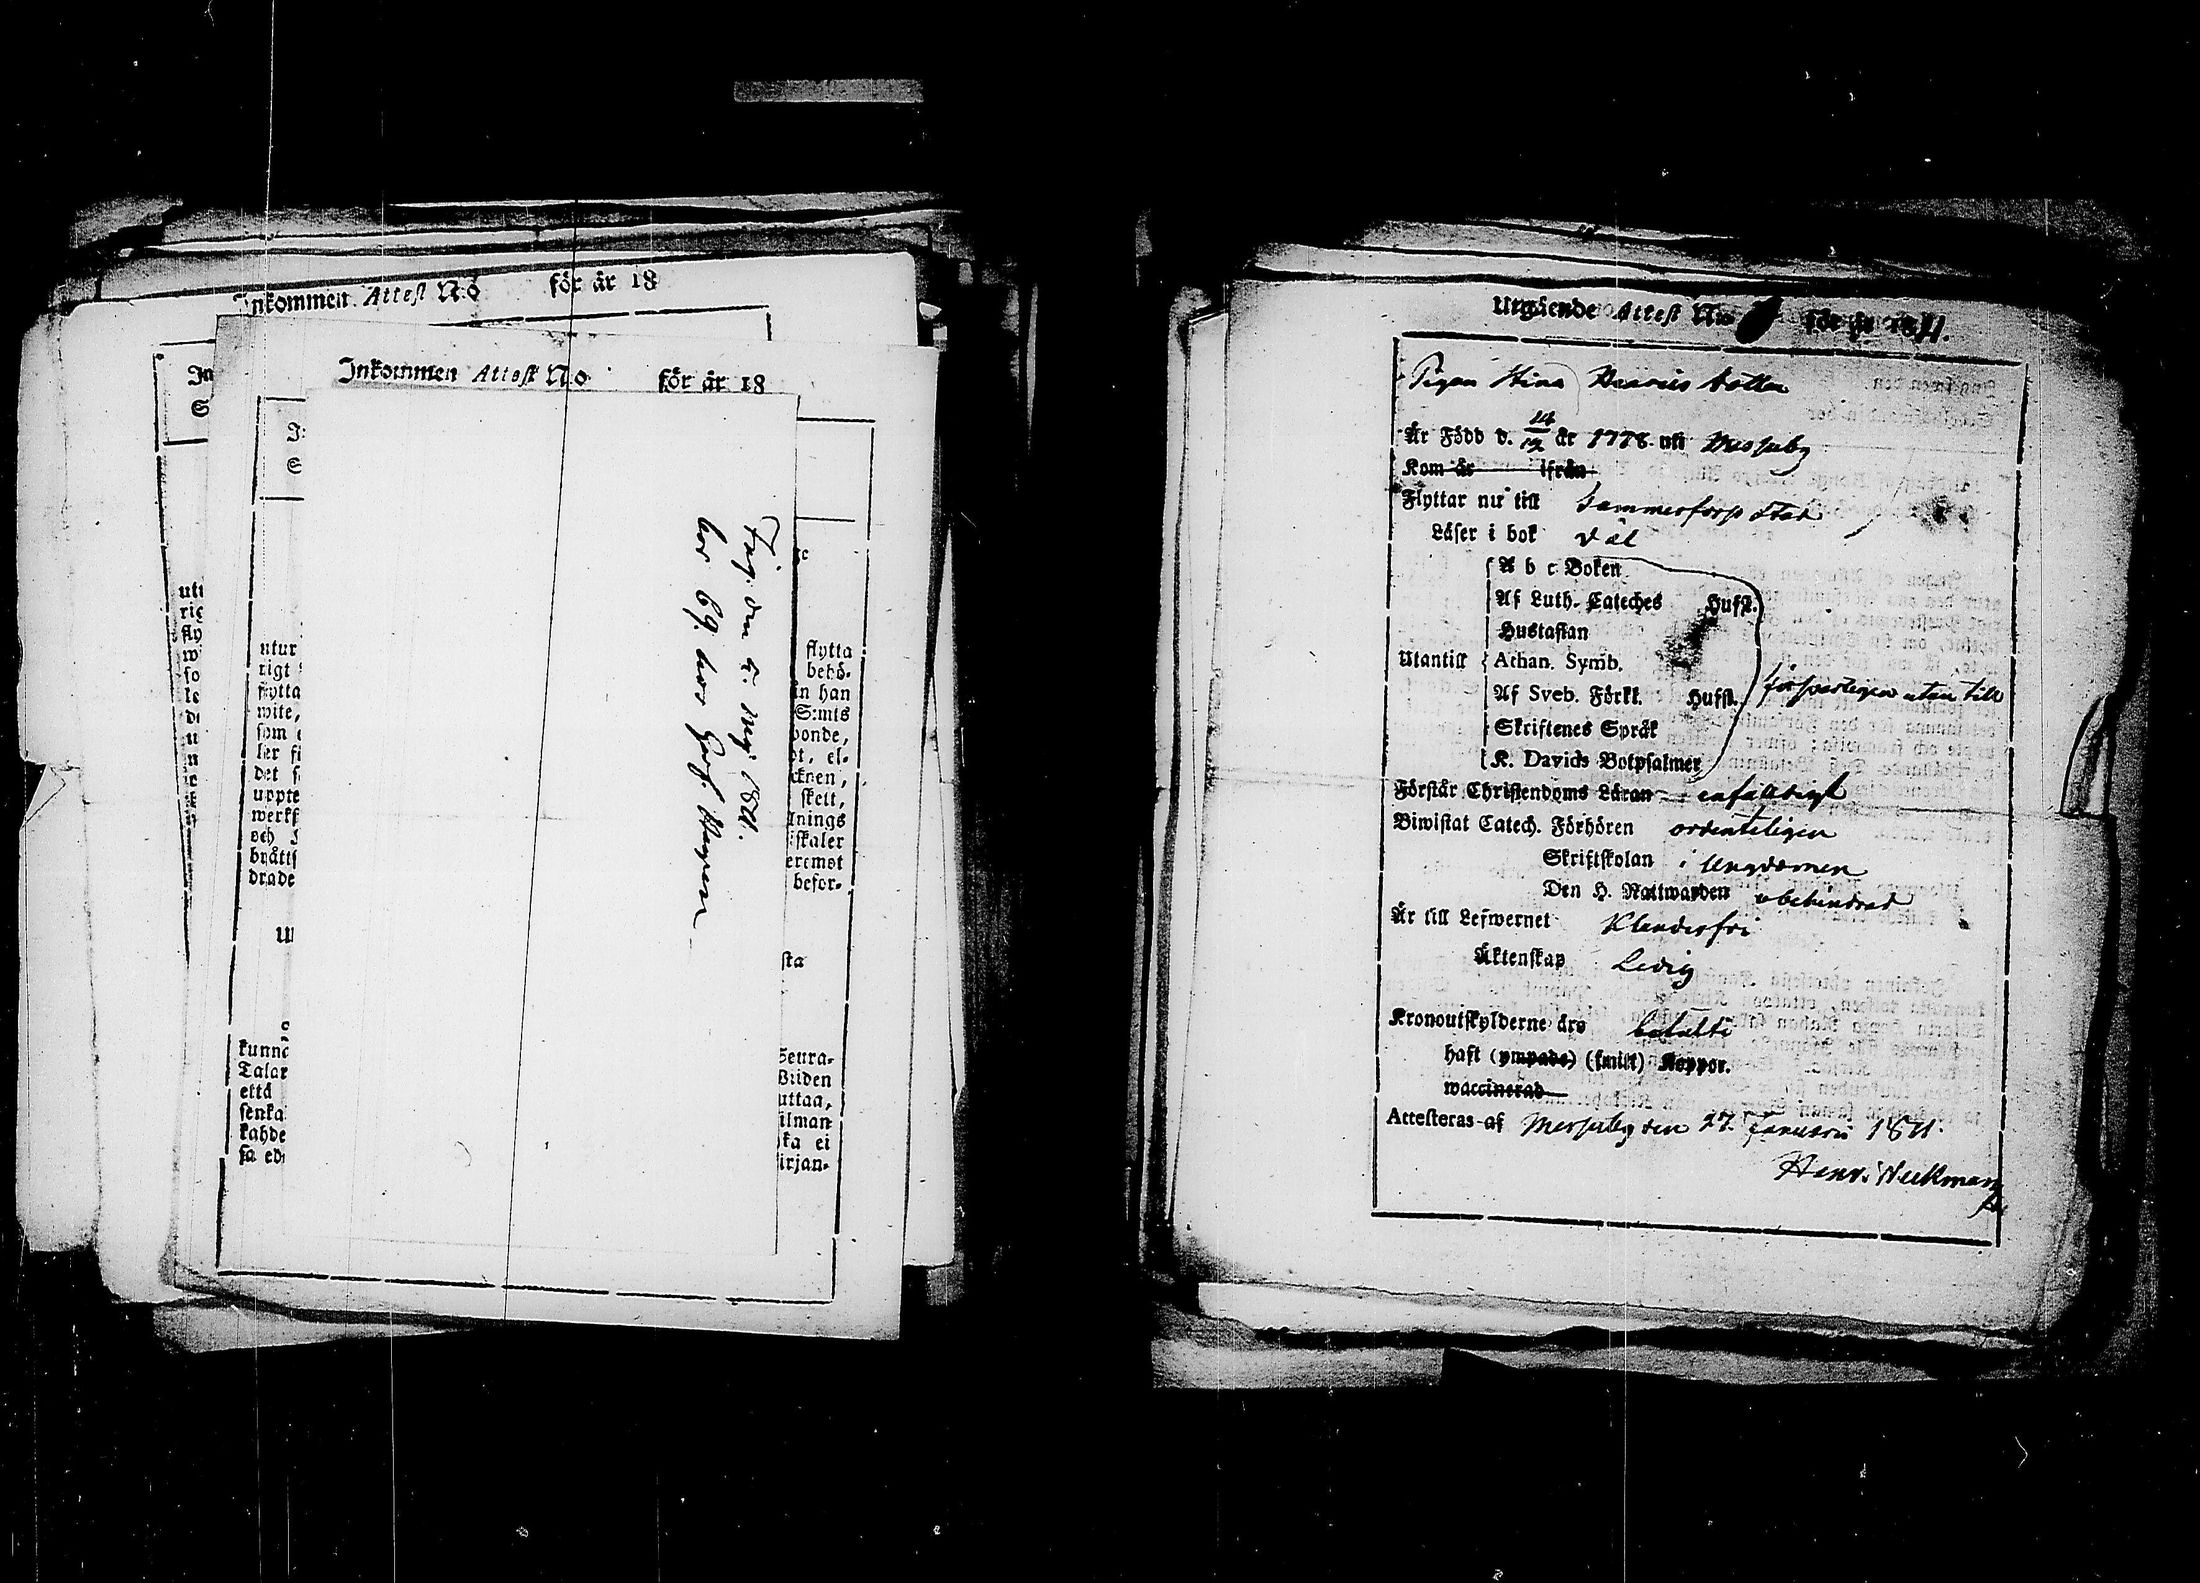 Inkommen Attest No för år 18
Inkommen Attest No för år 18
utur
rigt
flytta
wite,
som
ler fi
det s
uppte
werks
och
brätts
drade
kunna
Talar
että
senka
kahde
sa ed
flytta
behö-
in han
S:mts
bonde,
et, el-
cknen,
skett,
dnings
fiskaler
eremot
befor-
sta
Seura-
Biiden
uttaa,
ilman
ka ei
irjan-
Ing. den 5. Maji 1811.
bor 69. hos
Utgående Attest No för år 1811.
Pigan Stina Henrics dotter
Är Född d. 14/12 år 1778 uti Messuby
Kom år ifrån
Flyttar nu till Tammerfors Stad
Läser i bok väl
A b c Boken
Af Luth. Cateches Hufst.
Hustaflan
Utantill Athan. Symb.
Af Sveb. Förkl. Hufst. försvarligen utan till
Skriftenes Språk
K. Davids Botpsalmer
Förstår Christendoms Läran enfalldigt
Biwistat Catech. Förhören ordenteligen
Skriftskolan i Ungdomen
Den H. Nattwarden obehindrad
Är till Lefwernet Klanderfri
Äktenskap Ledig
Kronoutskylderne äro betalte
haft (ympade) (smitt) Koppor.
waccinerad
Attesteras af Messuby den 27. Januarii 1811.
Henr. Heckman